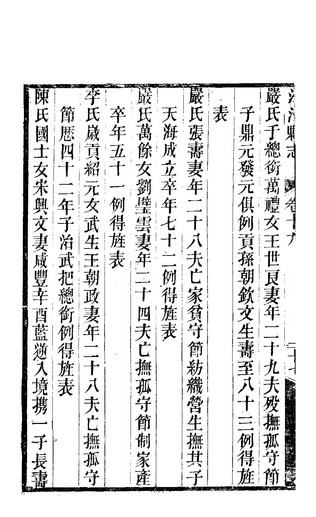 縣志 卷十九
嚴氏于總銜萬禮女王世良妻年二十九夫歿撫孤守節
子鼎元發元俱例貢孫朝欽文生壽至八十三例得旌
表
嚴氏張壽妻年二十八夫亡家貧守節紡織營生撫其子
天海成立卒年七十二例得旌表
嚴氏萬餘女劉璧雲妻年二十四夫亡撫孤守節制家產
卒年五十一例得旌表
李氏歲貢紹元女武生王朝政妻年二十八夫亡撫孤守
節歷四十二年子治武把總銜例得旌表
陳氏國士女宋興文妻咸豐辛酉藍逆入境攜一子長壽